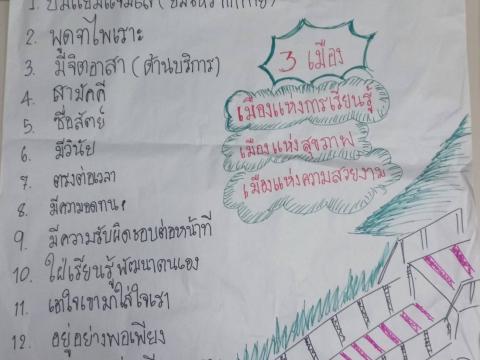 1. ยิ้มแย้มแจ่มใส (
2. พูดจาไพเราะ
3. มีจิตอาสา (ด้านบริการ)
4. สามัคคี
5. ซื่อสัตย์
6. มีวินัย
7. ตรงต่อเวลา
8. มีความอดทน
9. มีความรับผิดชอบต่อหน้าที่
10. ใฝ่เรียนรู้พัฒนาตนเอง
11. เอาใจเขามาใส่ใจเรา
12. อยู่อย่างพอเพียง
3 เมือง
เมืองแห่งการเรียนรู้
เมืองแห่งสุขภาพ
เมืองแห่งความสวยงาม